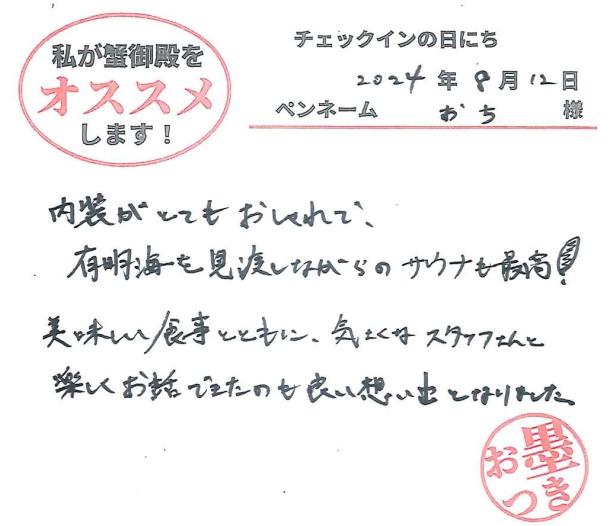 私が蟹御殿を
オススメ
します！
チェックインの日にち
2024年8月12日
ペンネーム おち 様
内装がとてもおしゃれで、
有明海を見渡しながらのサウナも最高!
美味しい食事とともに、気さくなスタッフさんと
楽しくお話できたのも良い想い出となりました。
お墨
つき